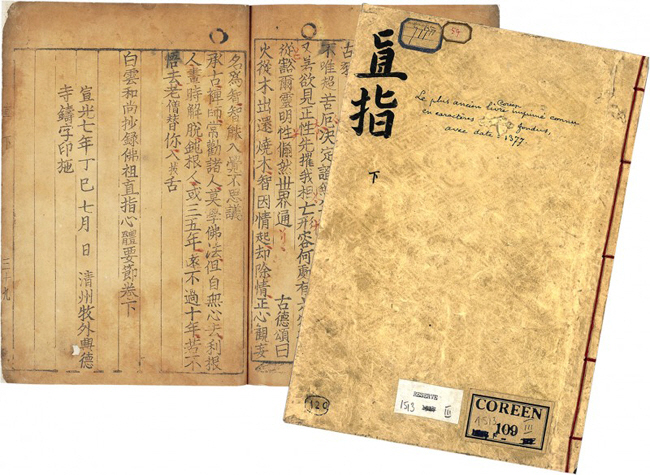 若欲見正性先摧我相亡形容何
從豁爾靈明性儼然世界通 古德頌曰
火從木出還燒木智因情起却除情正心觀妄
名爲智智能入覺不思議
承古禪師常勸諸人莫學佛法但自無心去利根
人畫時解脫鈍根人或三五年遠不過十年若不
悟去老僧替你入拔舌
白雲和尚抄錄佛祖直指心體要節卷下
宣光七年丁巳七月 日 淸州牧外興德
寺鑄字印施
直指
下
Le plus ancien livre coréen imprimé connu
en caractères fondus,
avec date = 1377
RÉSERVE
1513 III
COREEN
109
120